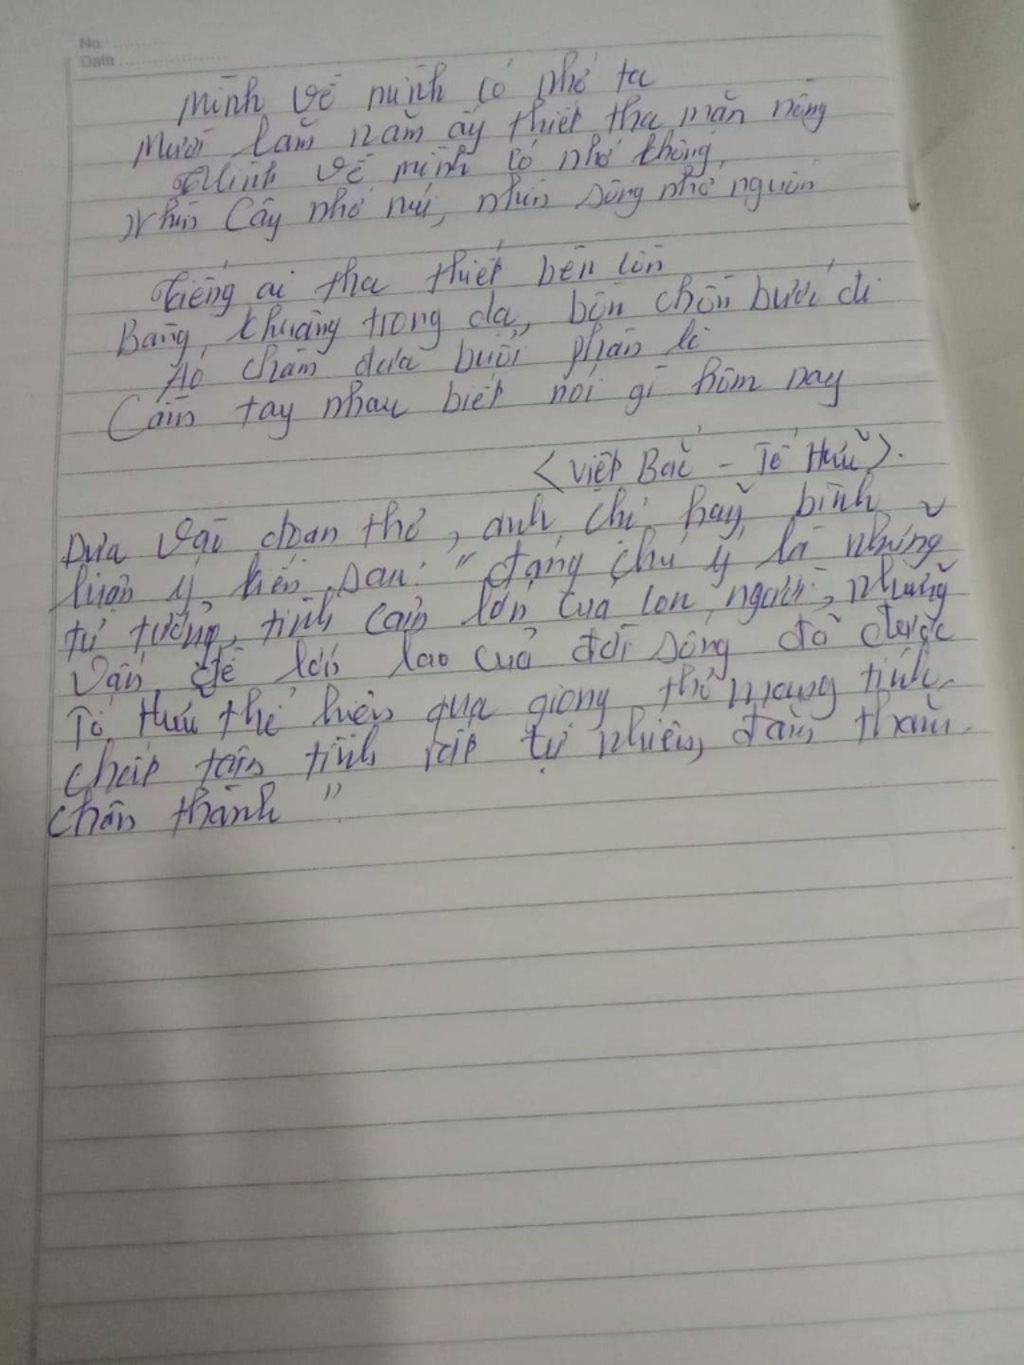 No.
Date
Mình về mình có nhớ ta
Mười lăm năm ấy thiết tha mặn nồng
Mình về mình có nhớ không
Nhìn cây nhớ núi, nhìn sông nhớ nguồn
Tiếng ai tha thiết bên cồn
Bâng khuâng trong dạ, bồn chồn bước đi
Áo chàm đưa buổi phân li
Cầm tay nhau biết nói gì hôm nay
<Việt Bắc - Tố Hữu>.
Dựa vào đoạn thơ, anh chị hãy bình
luận ý kiến sau: "đáng chú ý là những
tư tưởng, tình cảm lớn của con người, những
vấn đề lớn lao của đời sống đã được
Tố Hữu thể hiện qua giọng thơ mang tính
chất tâm tình rất tự nhiên, đằm thắm
chân thành".